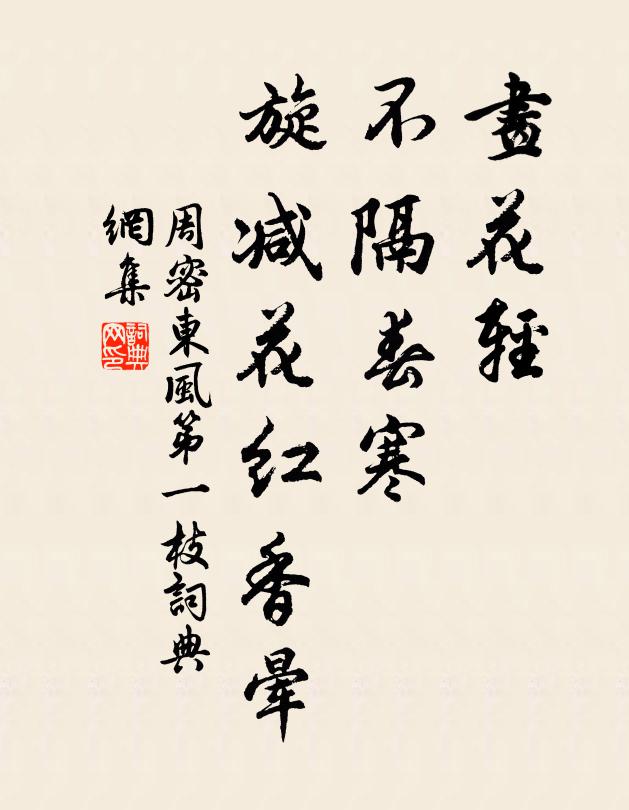 畫花輕
不隔春寒
旋减花红香暈
周密東風第一枝詞典
網集
詞典
网印